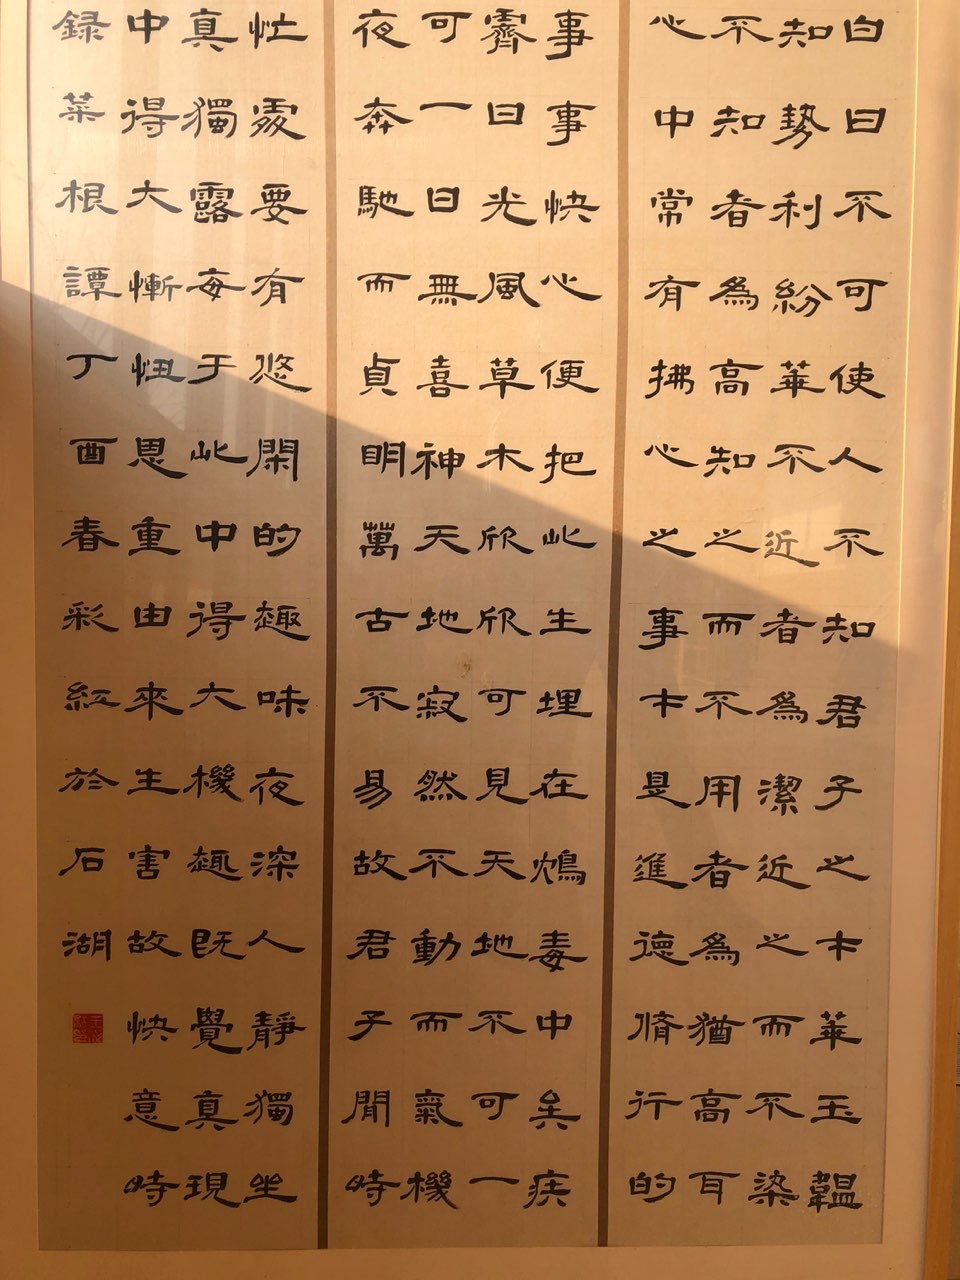 白日不可使人不知君子之才華玉韞
知勢利紛華不近者為潔近之而不染
不知者為高知之而不用者為猶高耳
心中常有拂心之事才是進德脩行的
事事快心便把此生埋在鴆毒中矣疾
霽日光風草木欣欣可見天地不可一
可一日無喜神天地寂然不動而氣機
夜奔馳而貞明萬古不易故君子閒時
忙處要有悠閑的趣味夜深人靜獨坐
真獨露每于此中得大機趣既覺真現
中得大慚忸恩重由來生害故快意時
錄菜根譚丁酉春彩紅於石湖